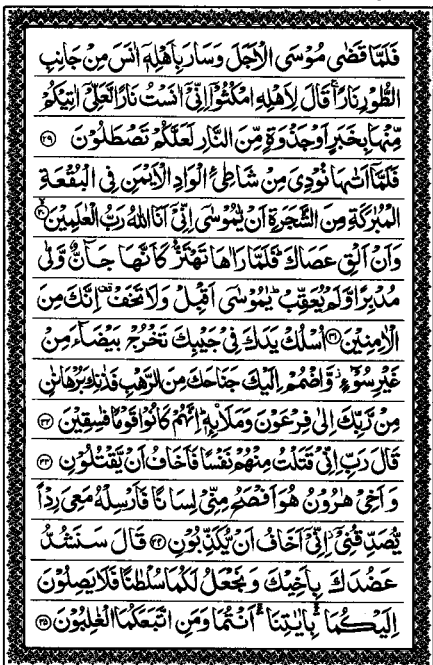 فَلَمَّا قَضٰى مُوْسَى الْاَجَلَ وَسَارَ بِاَهْلِهٖٓ اٰنَسَ مِنْ جَانِبِ
الطُّوْرِ نَارًا ۚ قَالَ لِاَهْلِهِ امْكُثُوْٓا اِنِّيْٓ اٰنَسْتُ نَارًا لَّعَلِّيْٓ اٰتِيْكُمْ
مِّنْهَا بِخَبَرٍ اَوْ جَذْوَةٍ مِّنَ النَّارِ لَعَلَّكُمْ تَصْطَلُوْنَ ۝۲۹
فَلَمَّآ اَتٰىهَا نُوْدِيَ مِنْ شَاطِئِ الْوَادِ الْاَيْمَنِ فِي الْبُقْعَةِ
الْمُبٰرَكَةِ مِنَ الشَّجَرَةِ اَنْ يّٰمُوْسٰٓى اِنِّيْٓ اَنَا اللّٰهُ رَبُّ الْعٰلَمِيْنَ ۝۳۰
وَاَنْ اَلْقِ عَصَاكَ ۭ فَلَمَّا رَاٰهَا تَهْتَزُّ كَاَنَّهَا جَآنٌّ وَّلّٰى
مُدْبِرًا وَّلَمْ يُعَقِّبْ ۭ يٰمُوْسٰٓى اَقْبِلْ وَلَا تَخَفْ ۣ اِنَّكَ مِنَ
الْاٰمِنِيْنَ ۝۳۱ اُسْلُكْ يَدَكَ فِيْ جَيْبِكَ تَخْرُجْ بَيْضَآءَ مِنْ
غَيْرِ سُوْٓءٍ ۡ وَّاضْمُمْ اِلَيْكَ جَنَاحَكَ مِنَ الرَّهْبِ فَذٰنِكَ بُرْهَانٰنِ
مِنْ رَّبِّكَ اِلٰى فِرْعَوْنَ وَمَلَا۟ئِهٖ ۭ اِنَّهُمْ كَانُوْا قَوْمًا فٰسِقِيْنَ ۝۳۲
قَالَ رَبِّ اِنِّيْ قَتَلْتُ مِنْهُمْ نَفْسًا فَاَخَافُ اَنْ يَّقْتُلُوْنِ ۝۳۳
وَ اَخِيْ هٰرُوْنُ هُوَ اَفْصَحُ مِنِّيْ لِسَانًا فَاَرْسِلْهُ مَعِيَ رِدْاً
يُّصَدِّقُنِيْٓ ۡ اِنِّيْٓ اَخَافُ اَنْ يُّكَذِّبُوْنِ ۝۳۴ قَالَ سَنَشُدُّ
عَضُدَكَ بِاَخِيْكَ وَ نَجْعَلُ لَكُمَا سُلْطٰنًا فَلَا يَصِلُوْنَ
اِلَيْكُمَا ۚ بِاٰيٰتِنَآ ۚ اَنْتُمَا وَمَنِ اتَّبَعَكُمَا الْغٰلِبُوْنَ ۝۳۵